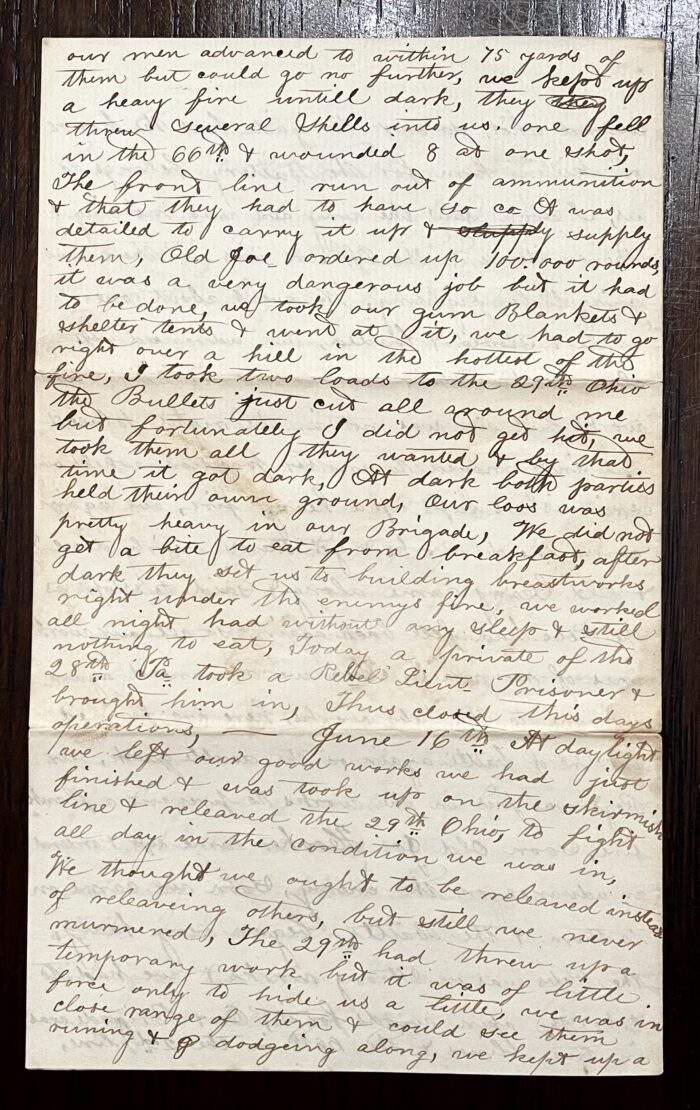 our men advanced to within 75 yards of
them but could go no further, we kept up
a heavy fire untill dark, they they
threw several shells into us. one fell
in the 66th & wounded 8 at one shot,
The front line run out of ammunition
& that they had to have so co A was
detailed to carry it up & supply
them, Old Joe ordered up 100.000 rounds,
it was a very dangerous job but it had
to be done, we took our gum Blankets &
shelter tents & went at it, we had to go
right over a hill in the hottest of the
fire, I took two loads to the 29th Ohio
the Bullets just cut all around me
but fortunately I did not get hit, we
took them all they wanted & by that
time it got dark, At dark both parties
held their own ground, Our loos was
pretty heavy in our Brigade, We did not
get a bite to eat from breakfast, after
dark they set us to building breastworks
right under the enemys fire, we worked
all night had without any sleep & still
nothing to eat, Today a private of the
28th Pa took a Rebel Lieut- Prisoner &
brought him in, Thus closed this days
operations, — June 16th At daylight
we left our good works we had just
finished & was took up on the skirmish
line & releaved the 29th Ohio, to fight
all day in the condition we was in,
We thought we ought to be releaved instead
of releaveing others, but still we never
murmered, The 29th had threw up a
temporary work but it was of little
force only to hide us a little, we was in
close range of them & could see them
runing & dodgeing along, we kept up a